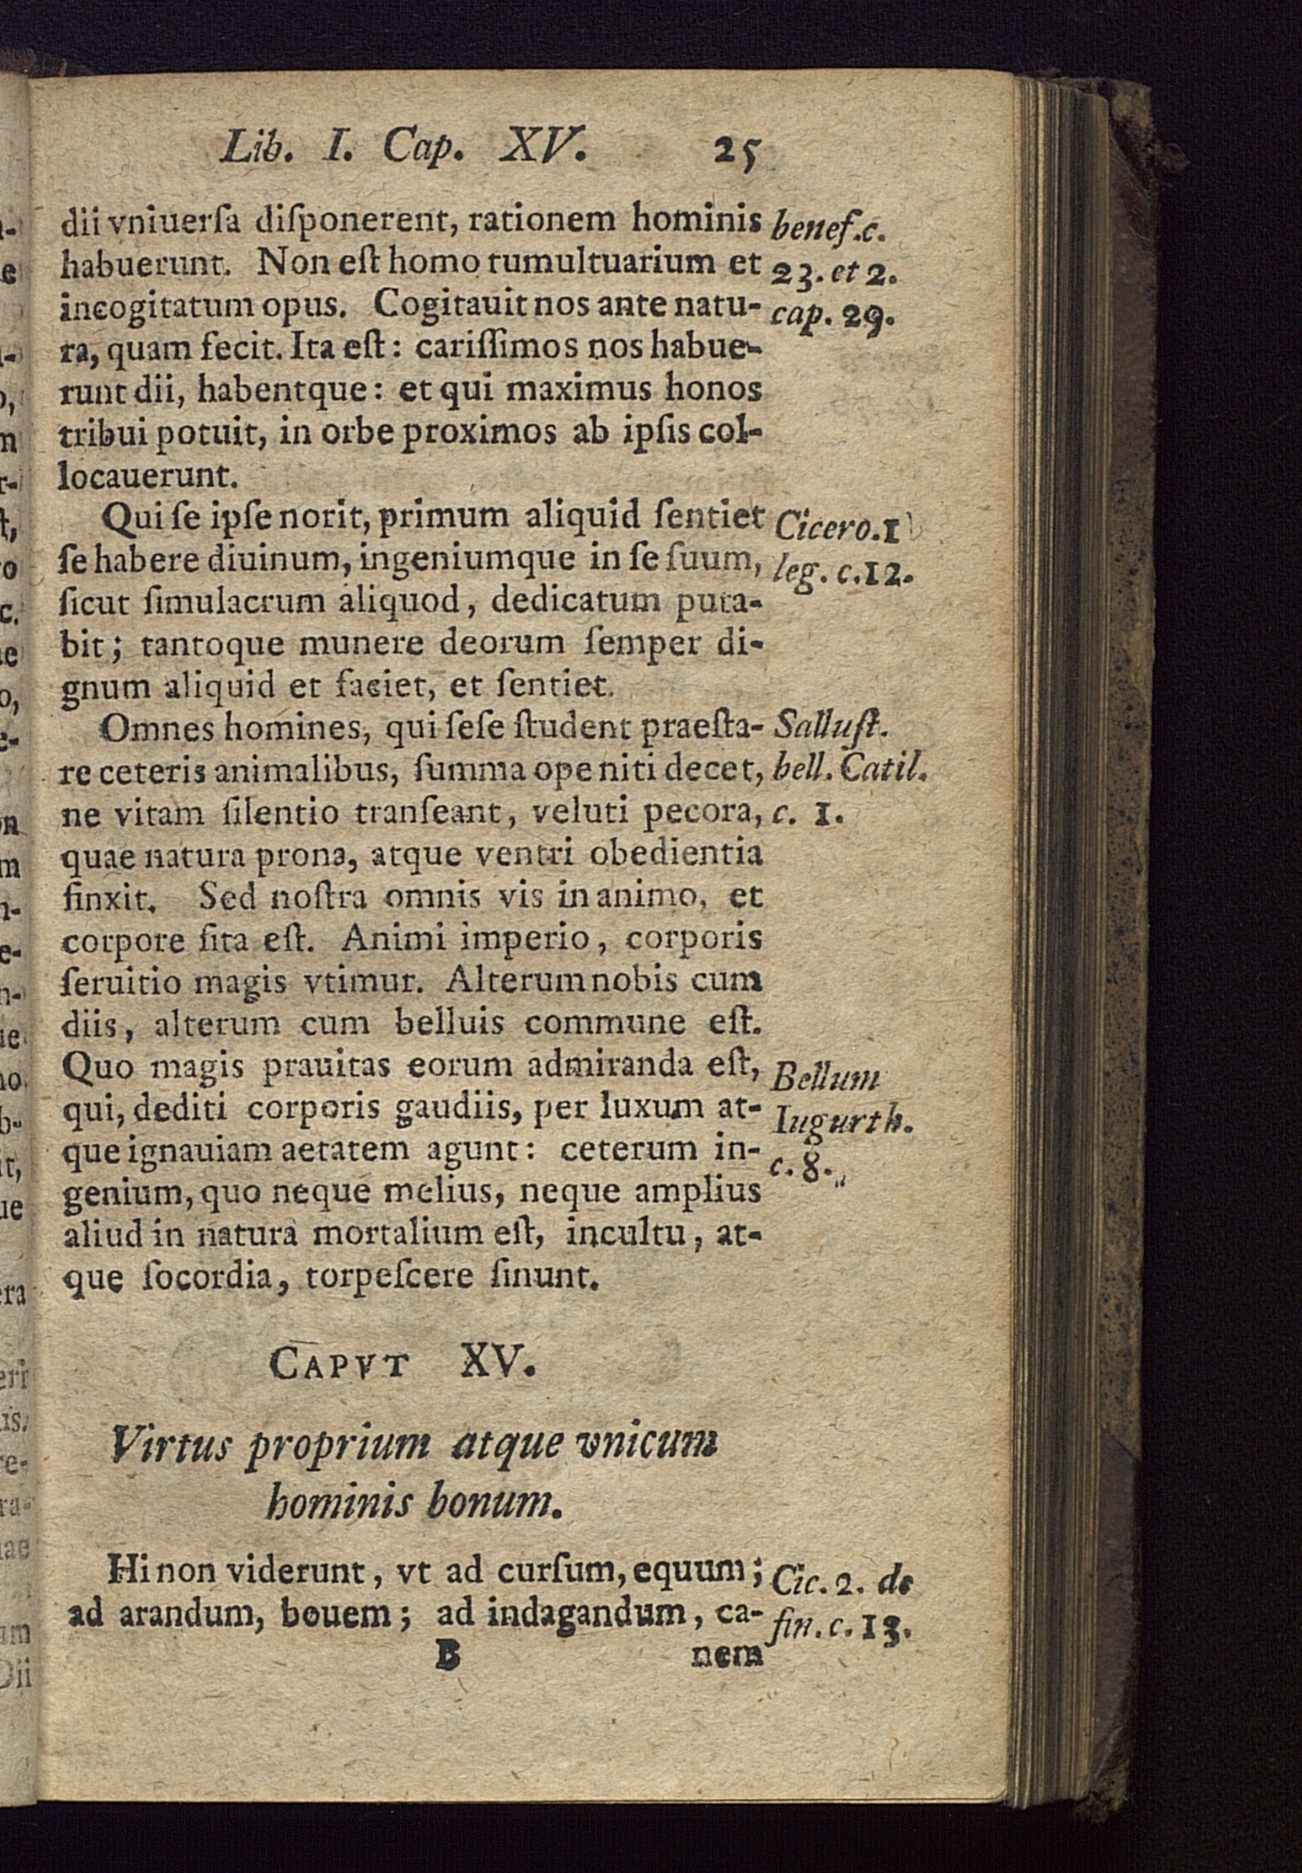 Lib. I. Cap. XV. 25
dii vniuerſa diſponerent, rationem hominis benef. c.
habuerunt. Non eſt homo tumultuarium et 23. et 2.
incogitatum opus. Cogitauit nos ante natu- cap. 29.
ra, quam fecit. Ita eſt: cariſſimos nos habue-
runt dii, habentque: et qui maximus honos
tribui potuit, in orbe proximos ab ipſis col-
locauerunt.
Qui ſe ipſe norit, primum aliquid ſentiet Cicero. 1
ſe habere diuinum, ingeniumque in ſe ſuum, leg. c. 12.
ſicut ſimulacrum aliquod, dedicatum puta-
bit; tantoque munere deorum ſemper di-
gnum aliquid et faciet, et ſentiet.
Omnes homines, qui ſeſe ſtudent praeſta- Salluſt.
re ceteris animalibus, ſumma ope niti decet, bell. Catil.
ne vitam ſilentio tranſeant, veluti pecora, c. 1.
quae natura prona, atque ventri obedientia
finxit. Sed noſtra omnis vis in animo, et
corpore ſita eſt. Animi imperio, corporis
ſeruitio magis vtimur. Alterum nobis cum
diis, alterum cum belluis commune eſt.
Quo magis prauitas eorum admiranda eſt, Bellum
qui, dediti corporis gaudiis, per luxum at- Iugurth.
que ignauiam aetatem agunt: ceterum in- c. 8.
genium, quo neque melius, neque amplius
aliud in natura mortalium eſt, incultu, at-
que ſocordia, torpeſcere ſinunt.
CAPVT XV.
Virtus proprium atque vnicum
hominis bonum.
Hi non viderunt, vt ad curſum, equum; Cic. 2. de
ad arandum, bouem; ad indagandum, ca- fin. c. 13.
B nem